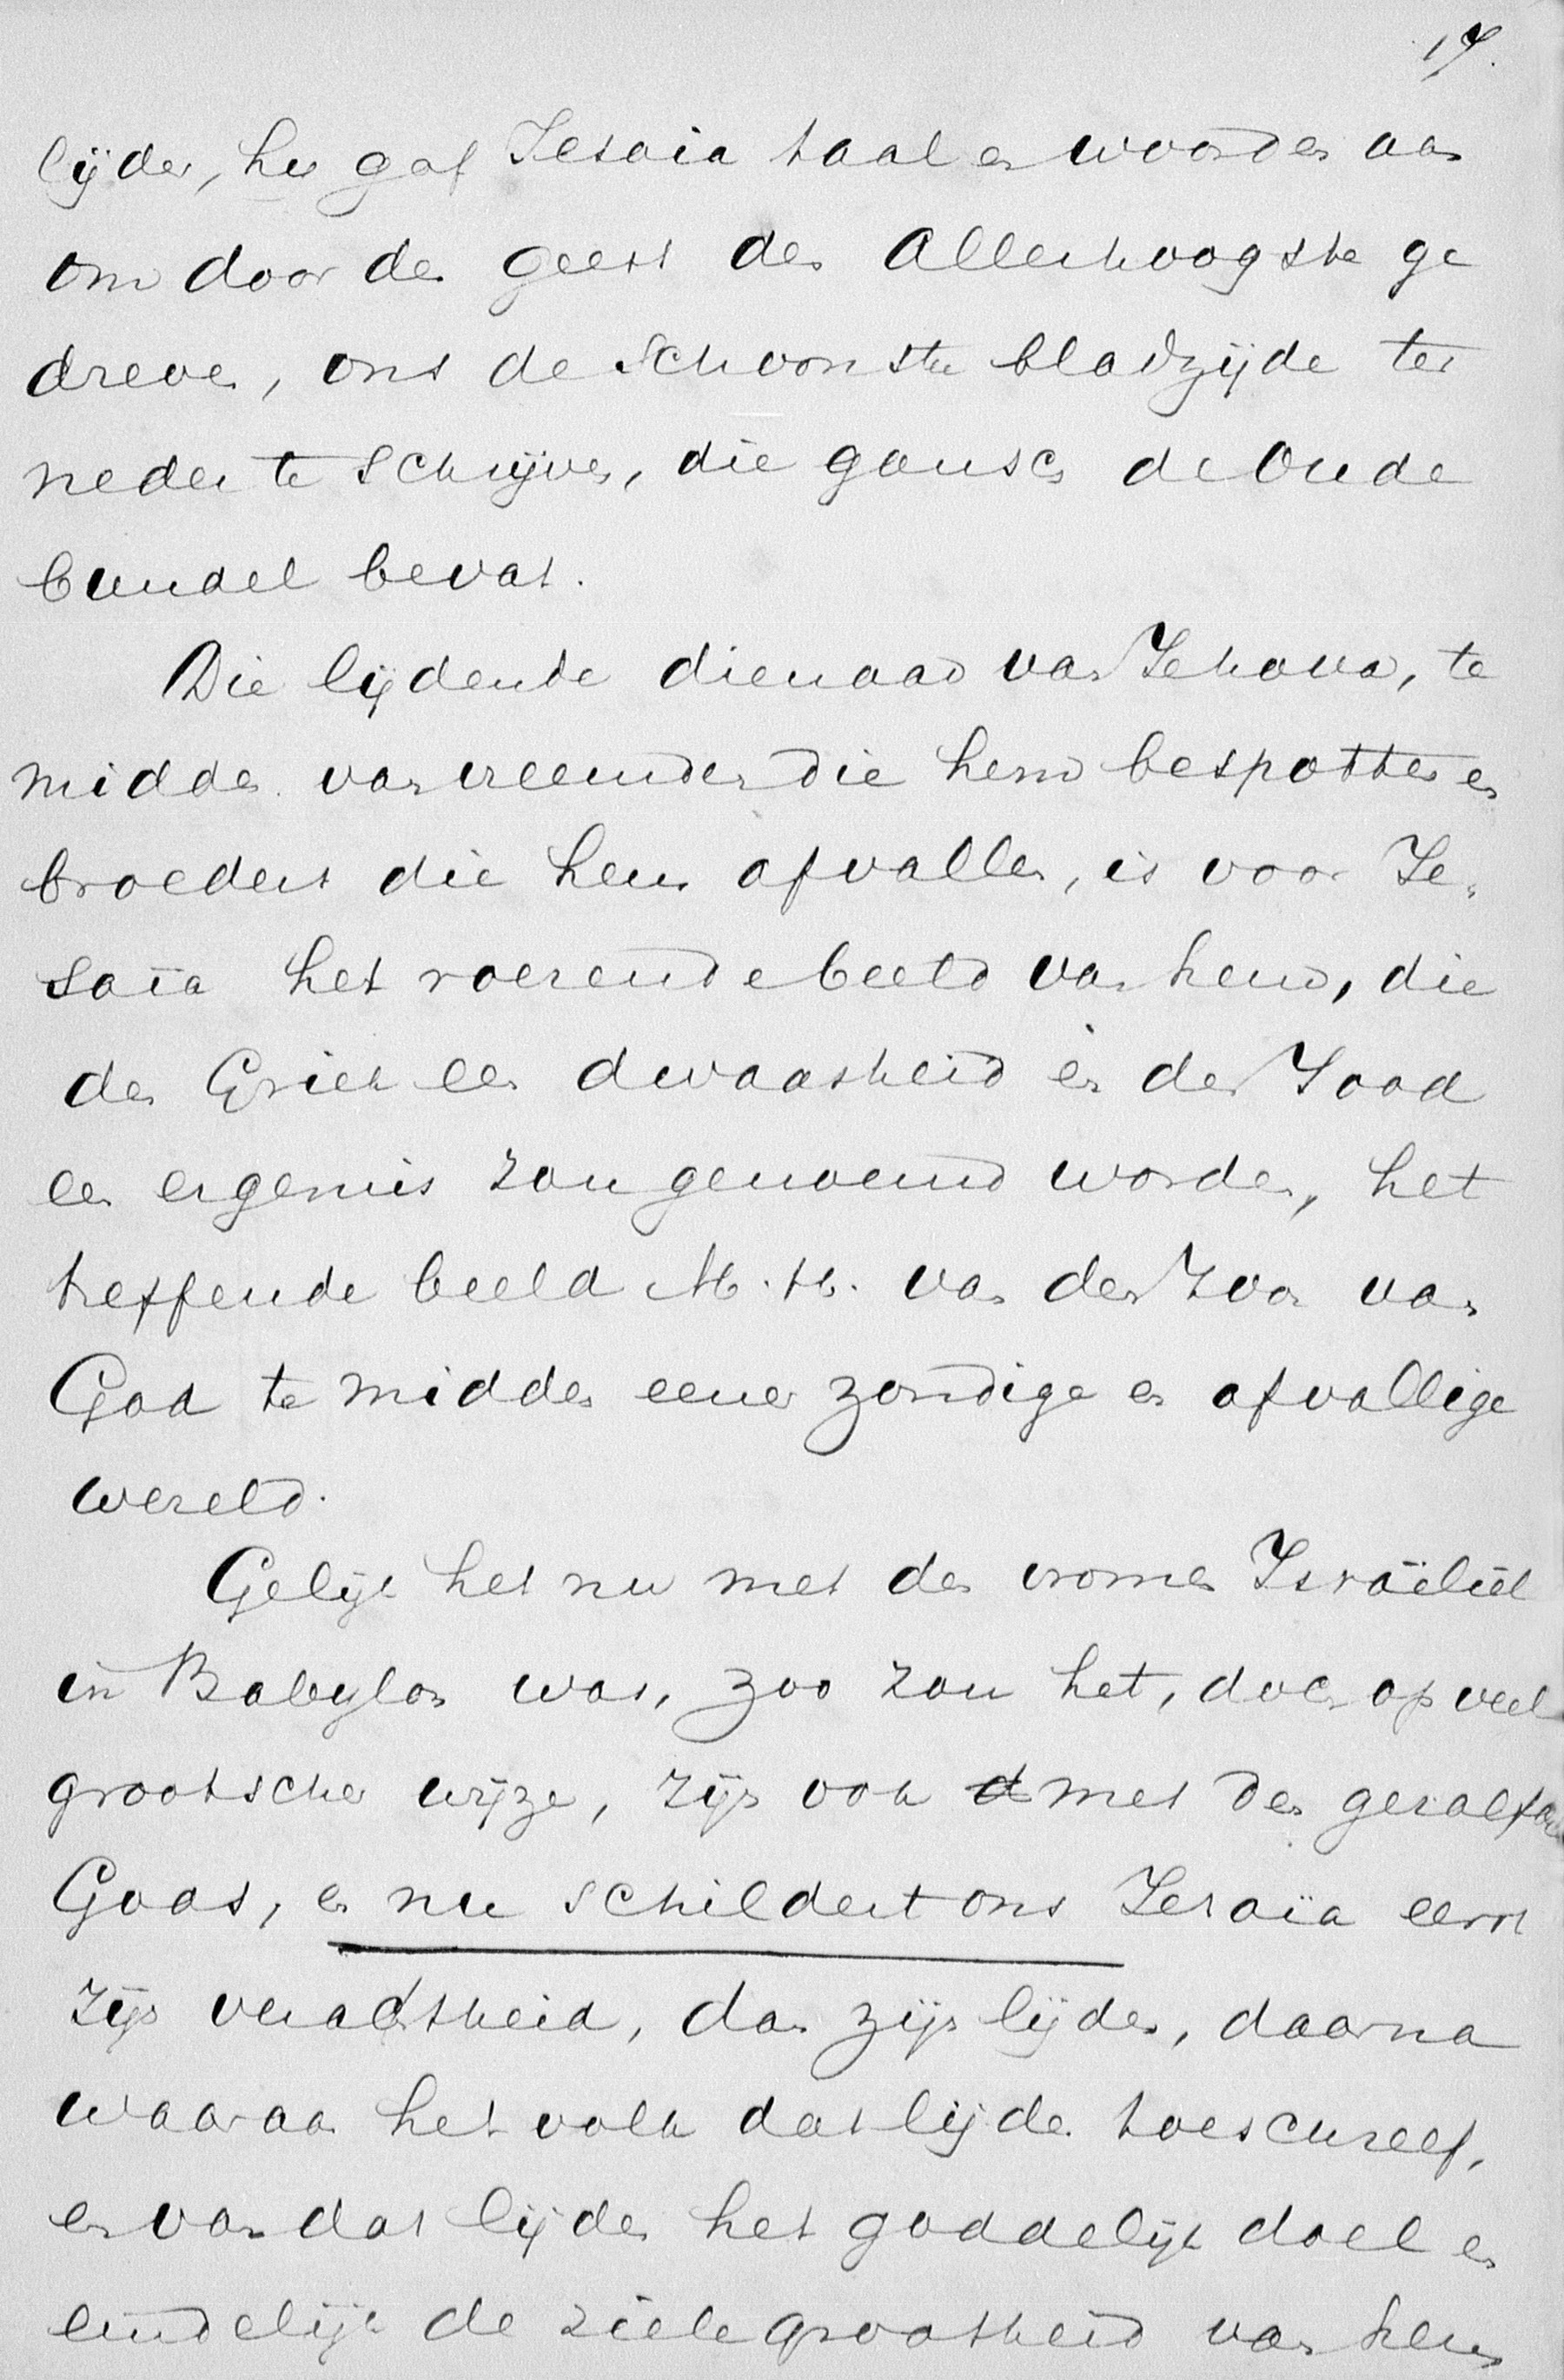 17.
lijden, het gaf Jesaia taal en woorden aan
om door den geest des Allerhoogste ge
dreven, ons de schoonste bladzijde ter
neder te schrijven, die gansch de Oude
bundel bevat.
Die lijdende dienaar van Jehova, te
midden van vreemden die hem bespotten en
broeders die hem afvallen, is voor Je„
saïa het roerende beeld van hem, die
den Griek een dwaasheid en den Jood
een ergenis zou genoemd worden, het
treffende beeld M. H. van den Zoon van
God te midden eener zondige en afvallige
wereld.
Gelijk het nu met den vromen Israëliet
in Babylon was, zoo zou het, doch op veel
grootscher wijze, zijn ook met den gezalfden
Gods, en nu schildert ons Jesaïa eerst
zijn verachtheid, dan zijn lijden, daarna
waaraan het volk dat lijden toeschreef,
en van dat lijden het goddelijk doel en
eindelijk de zielegrootheid van hem